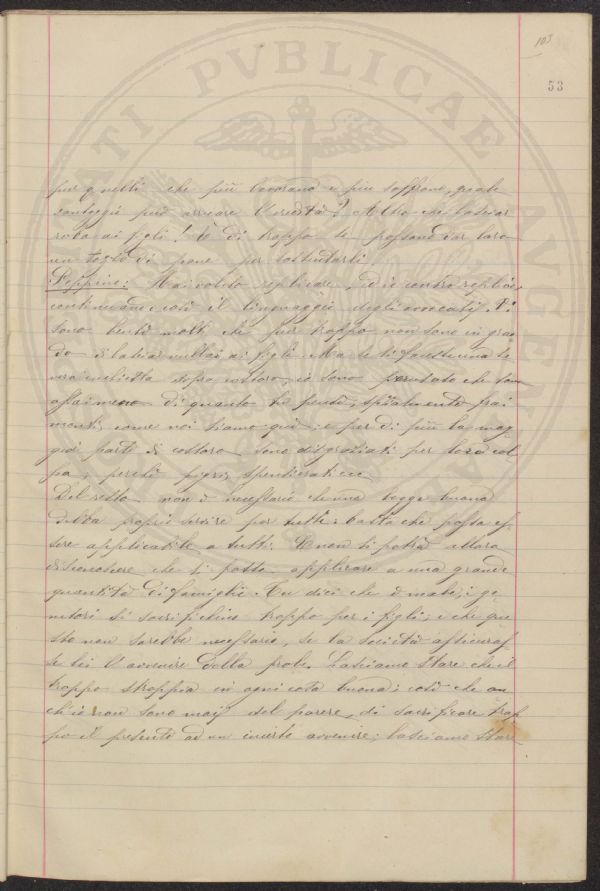 103
53
per quelli che più lavorano e più soffrono, quale
vantaggio può arrecare l'eredità? Altro che lasciar
roba ai figli! È di troppo se possano dar loro
un tozzo di pane per sostentarli.
Peppino: Hai voluto replicare, ed io contro replico,
continuando così il linguaggio degli avvocati. Vi
sono bensì molti che pur troppo non sono in gra-
do di lasciar nulla ai figli. Ma se si facesse una se
ria inchiesta sopra costoro, io sono persuaso che son
assai meno di quanto tu pensi, specialmente frai
monti, come noi siamo qui: e per di più la mag-
gior parte di costoro sono disgraziati per loro col-
pa, perchè pigri, spensierati ecc
Del resto non è necessario che una legge buona
debba proprio servire per tutti: basta che possa es-
sere applicabile a tutti. E non si potrà allora
disconoscere che si possa applicare a una grande
quantità di famiglie. Tu dici che è male, i ge-
nitori si sacrifichino troppo per i figli; e che que-
sto non sarebbe necessario, se la società assicuras-
se lei l'avvenire della prole. Lasciamo stare che il
troppo stroppia in ogni cosa buona; così che an-
ch'io non sono mai del parere, di sacrificare trop-
po il presente ad un incerto avvenire; lasciamo stare
PVBLICAE